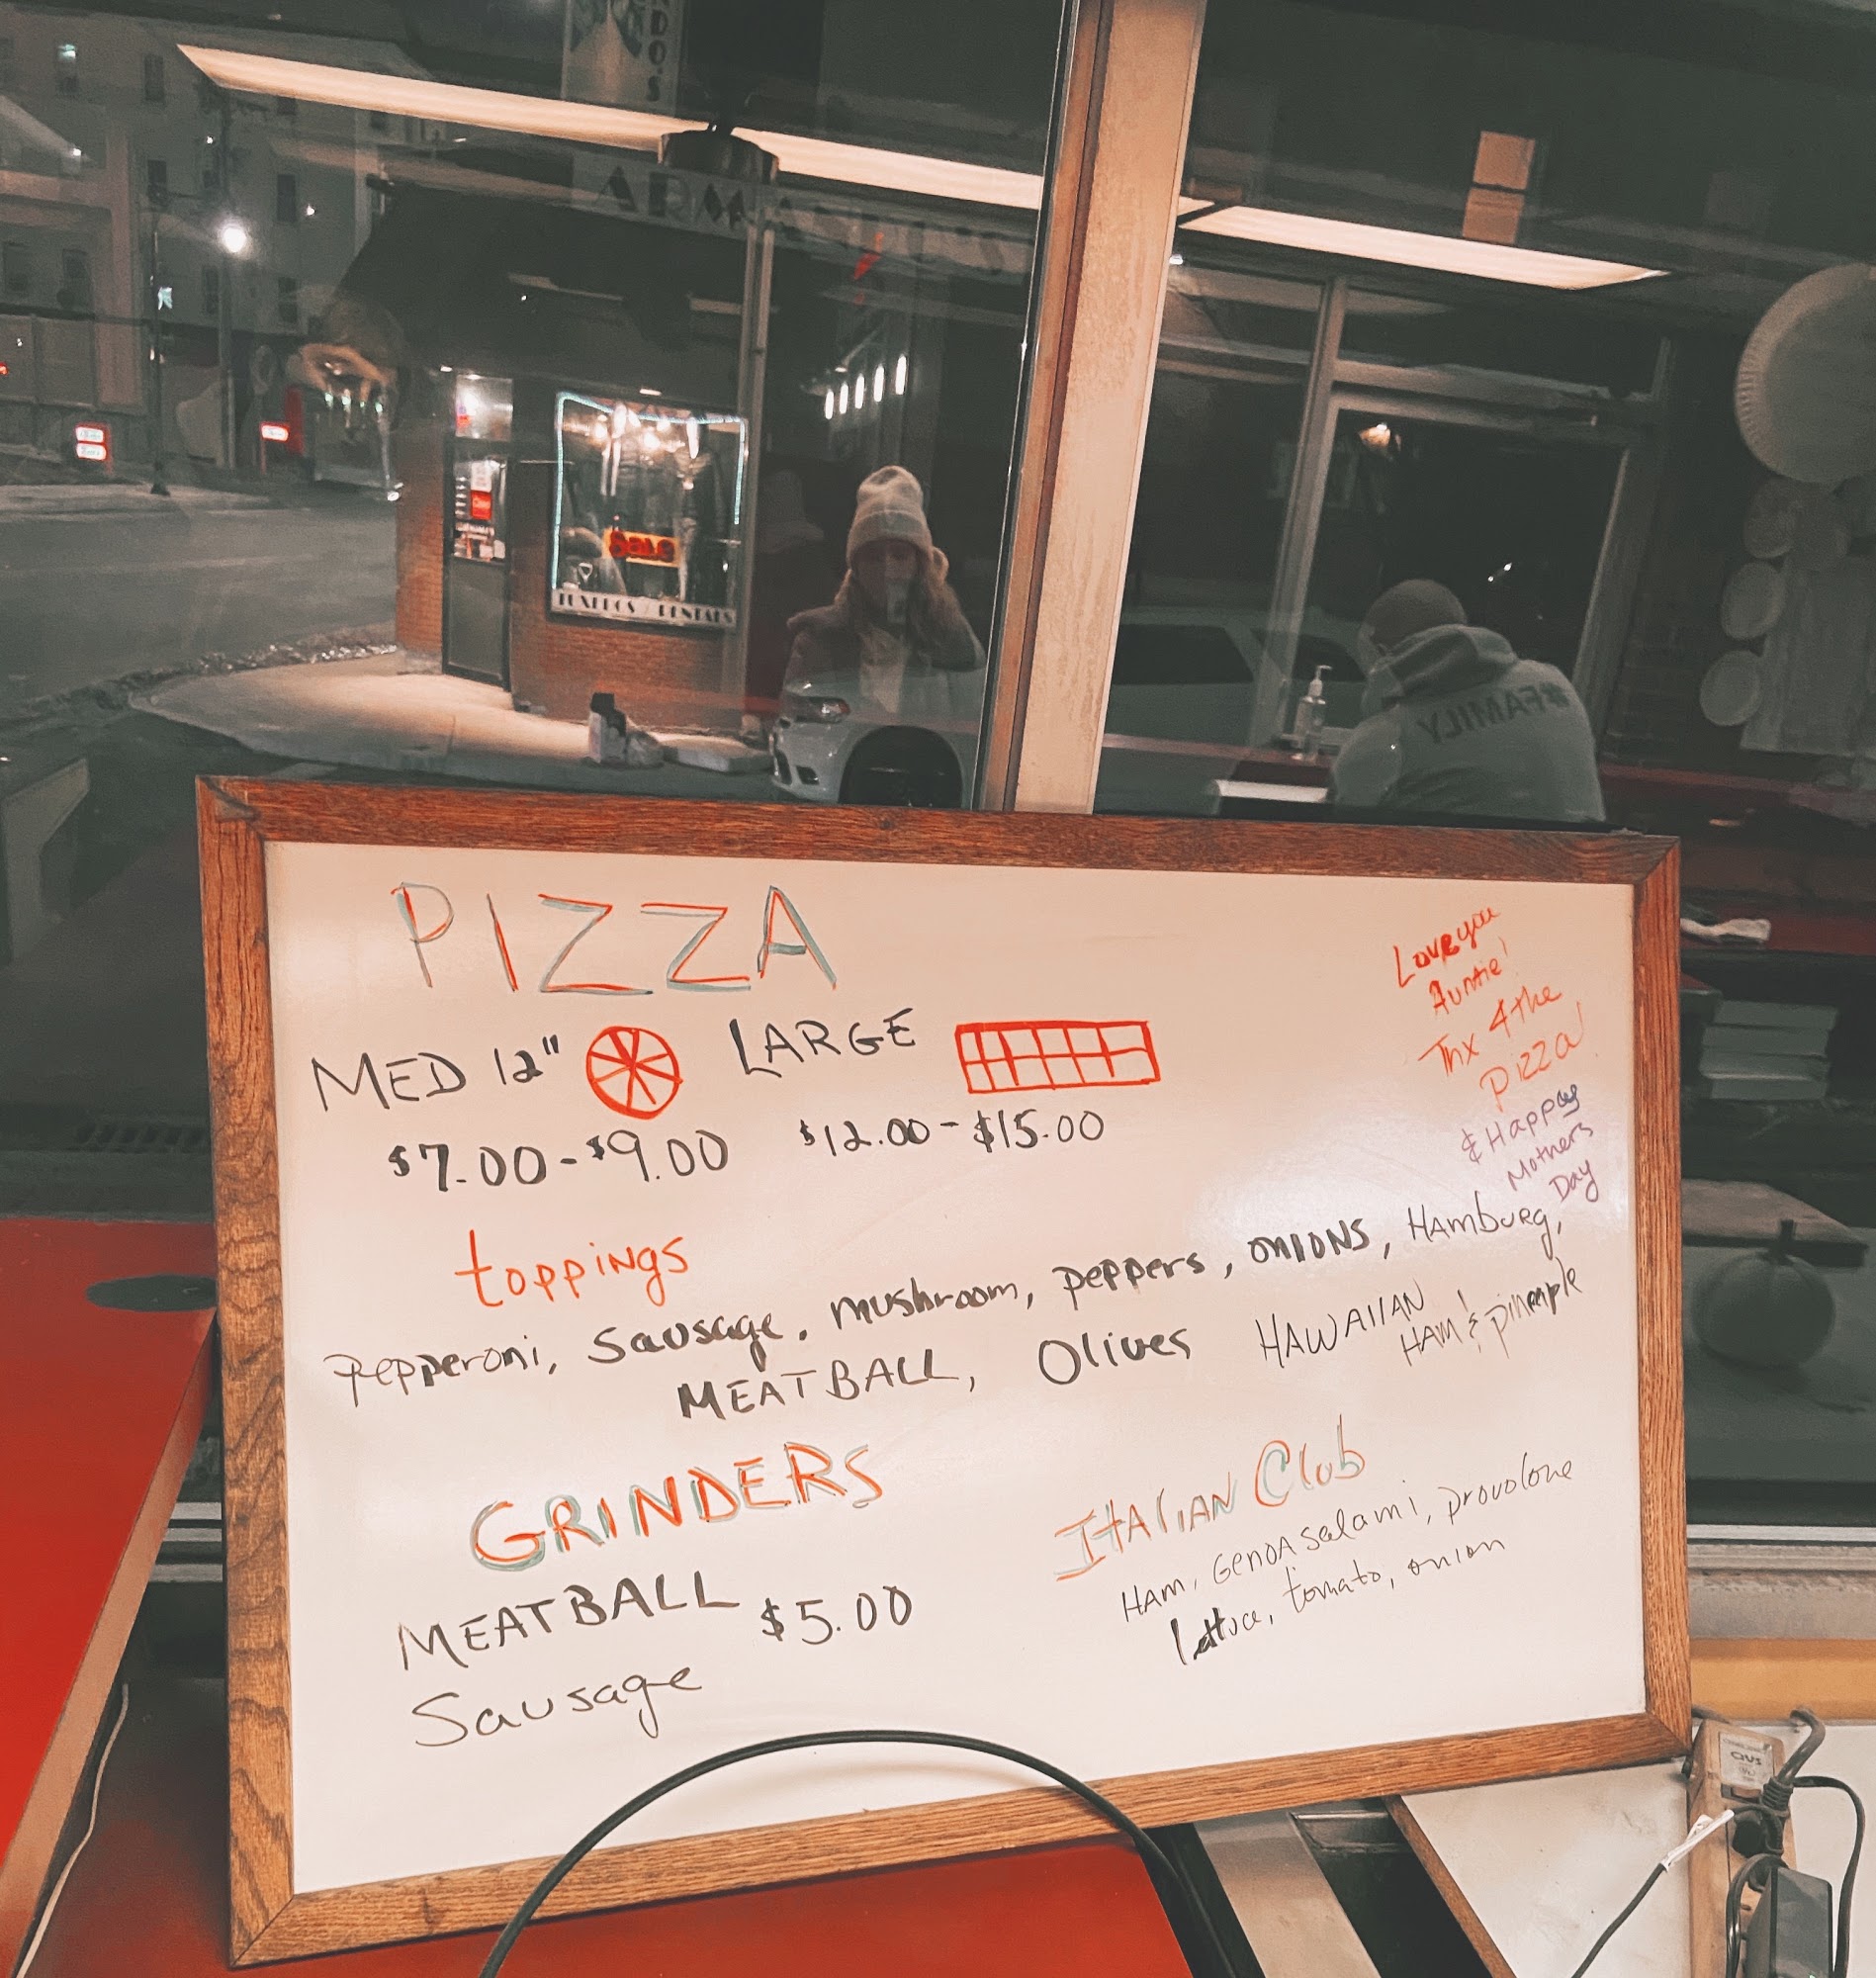 ARMANDO'S
Sale
TUXEDOS / RENTALS
#FAMILY
PIZZA
MED 12" LARGE
$7.00-$9.00 $12.00-$15.00
Love you
Auntie!
Thx 4 the
Pizza!
& Happy
Mothers
Day
toppings
Pepperoni, Sausage, mushroom, peppers, ONIONS, HAmburg,
MEATBALL, Olives HAWAIIAN
HAM & pineapple
GRINDERS
MEATBALL $5.00
Sausage
ITALIAN Club
HAM, GENOA salami, provolone
lettuce, tomato, onion